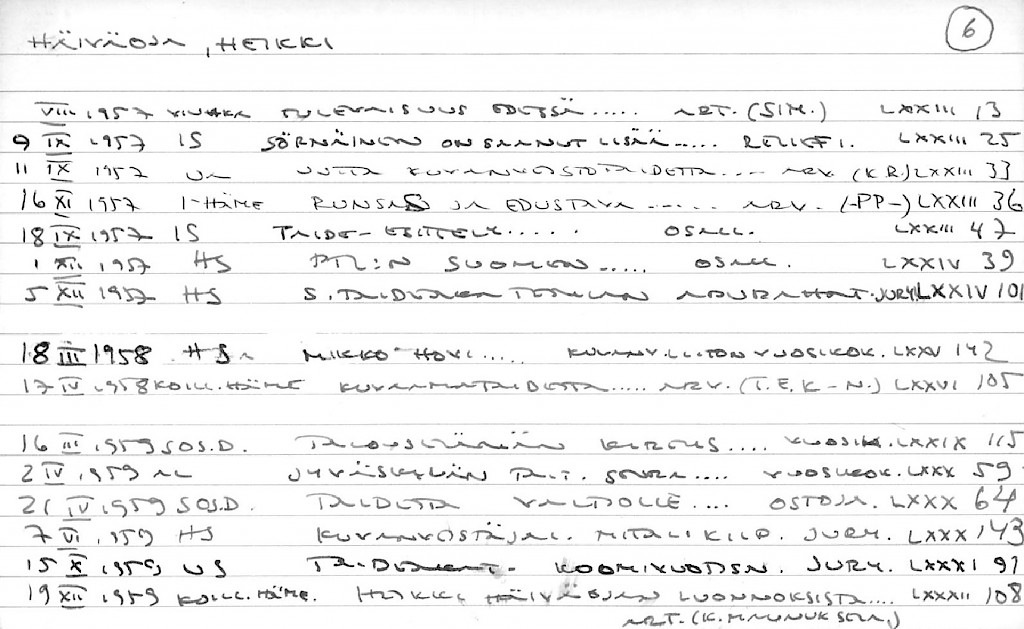 HÄIVÄOJA, HEIKKI
6
VIII 1957 VIUHKA TULEVAISUUS EDESSÄ..... ART. (SIM.) LXXIII 13
9 IX 1957 IS SÖRNÄINEN ON SAANUT LISÄÄ..... RELIEFI. LXXIII 25
11 IX 1957 UA UUTTA KUVANVEISTOTAIDETTA... ARV. (K.R.) LXXIII 33
16 XI 1957 I-HÄME RUNSAS JA EDUSTAVA ...... ARV. (-PP-) LXXIII 36
18 IX 1957 IS TAIDE-ESITTELY..... OSALL. LXXIII 47
1 XII 1957 HS PTL:N SUOMEN..... OSALL. LXXIV 39
5 XII 1957 HS S. TAIDEAKATEMIAN APURAHAT. JURY. LXXIV 101
18 III 1958 HS. MIKKO HOVI..... KUVANV. LIITON VUOSIKOK. LXXV 142
17 IV 1958 KOILL. HÄME KUVAAMATAIDETTA..... ARV. (T.E.K-N.) LXXVI 105
16 III 1959 SOS.D. KERTOUS.... VUOSIK. LXXIX 115
2 IV 1959 JYVÄSKYLÄN TAIT. SEURA.... VUOSIKOK. LXXX 59
21 IV 1959 SOS.D. TAIDETTA VALTIOLLE.... OSTOJA. LXXX 64
7 VI 1959 HS KUVANVEISTÄJÄL. MITALIKILP. JURY. LXXX 143
15 X 1959 US JURY. LXXXI 97
19 XII 1959 KOILL. HÄME. HEIKKI HÄIVÄOJAN LUONNOKSISTA.... LXXXII 108
ART. (K. MAUNUKSELA.)